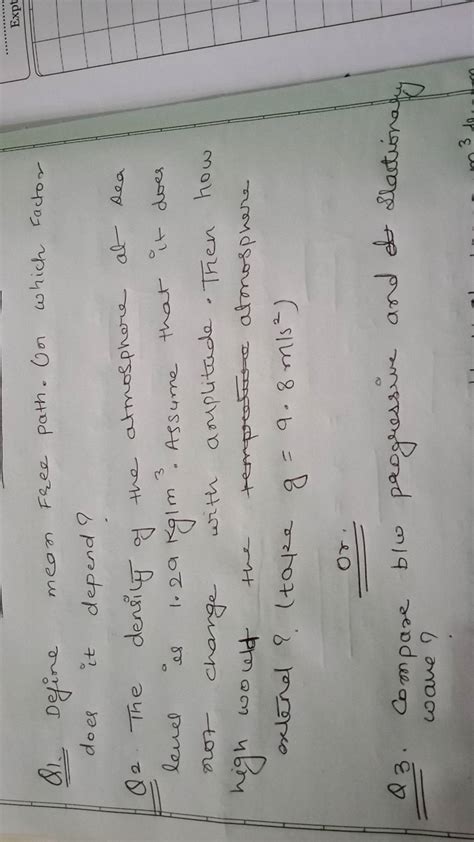 Expt
Q1. Define mean free path. On which factor
does it depend?
Q2. The density of the atmosphere at sea
level is 1.29 Kg/m³. Assume that it does
not change with amplitude. Then how
high would the temprature atmosphere
extend? (take g = 9.8 m/s²)
Or.
Q3. Compare b/w progressive and stationary
wave?